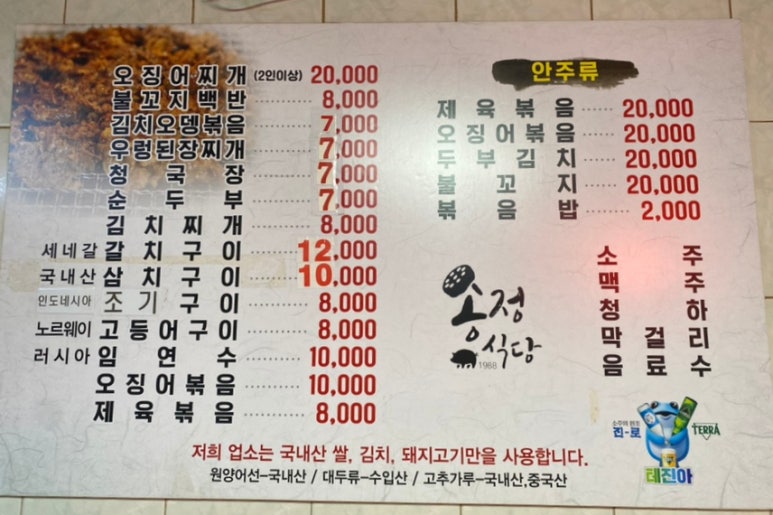 오징어찌개 (2인이상) 20,000
불꼬지백반 8,000
김치오뎅볶음 7,000
우렁된장찌개 7,000
청국장 7,000
순두부 7,000
김치찌개 8,000
세네갈 갈치구이 12,000
국내산 삼치구이 10,000
인도네시아 조기구이 8,000
노르웨이 고등어구이 8,000
러시아 임연수 10,000
오징어볶음 10,000
제육볶음 8,000
안주류
제육볶음 20,000
오징어볶음 20,000
두부김치 20,000
불꼬지 20,000
볶음밥 2,000
소주
맥주
청하
막걸리
음료수
옹정
식당
1988
소주의 원조
진-로
TERRA
테진아
저희 업소는 국내산 쌀, 김치, 돼지고기만을 사용합니다.
원양어선-국내산 / 대두류-수입산 / 고추가루-국내산,중국산